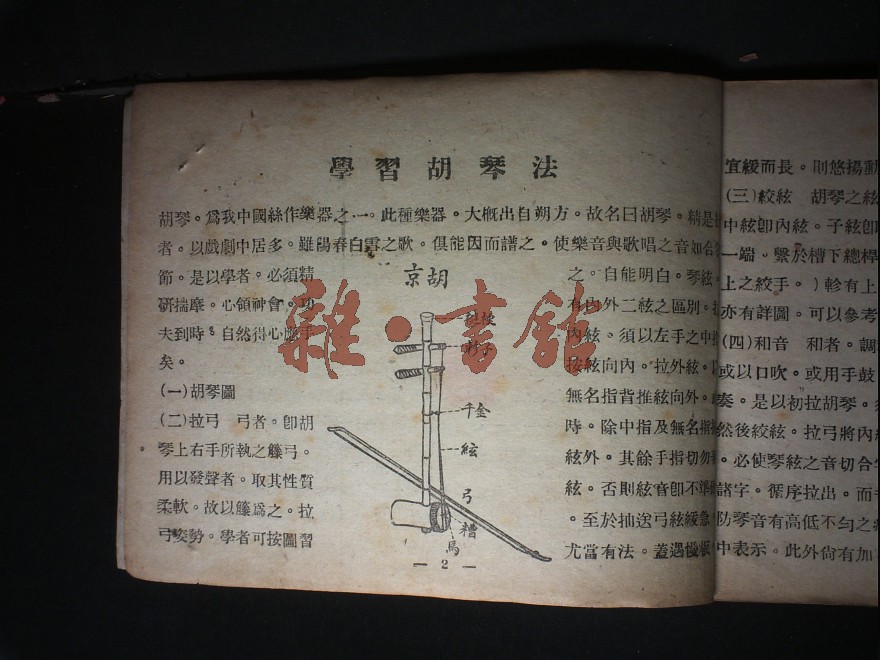 學習胡琴法
胡琴。爲我中國絲作樂器之一。此種樂器。大概出自朔方。故名曰胡琴。精是
者。以戲劇中居多。雖陽春白雪之歌。俱能因而譜之。使樂音與歌唱之音如合
節。是以學者。必須精
研揣摩。心領神會。功
夫到時。自然得心應手
矣。
(一)胡琴圖
(二)拉弓 弓者。卽胡
琴上右手所執之籐弓。
用以發聲者。取其性質
柔軟。故以籐爲之。拉
弓姿勢。學者可按圖習
京胡
千金
絃
弓
糟
馬
之。自能明白。琴絃。
有內外二絃之區別。
內絃。須以左手之中
按絃向內。拉外絃。
無名指背推絃向外。
時。除中指及無名指
絃外。其餘手指切勿
絃。否則絃音卽不準
。至於抽送弓絃緩急
尤當有法。蓋遇慢板
— 2 —
宜緩而長。則悠揚動
(三)絞絃 胡琴之絃
中絃卽內絃。子絃卽
一端。繫於槽下總桿
上之絞手。)軫有上
亦有詳圖。可以參考
(四)和音 和者。調
或以口吹。或用手鼓
奏。是以初拉胡琴。
然後絞絃。拉弓將內
。必使琴絃之音切合
諸字。循序拉出。而
防琴音有高低不勻之
中表示。此外尙有加
雜·書館